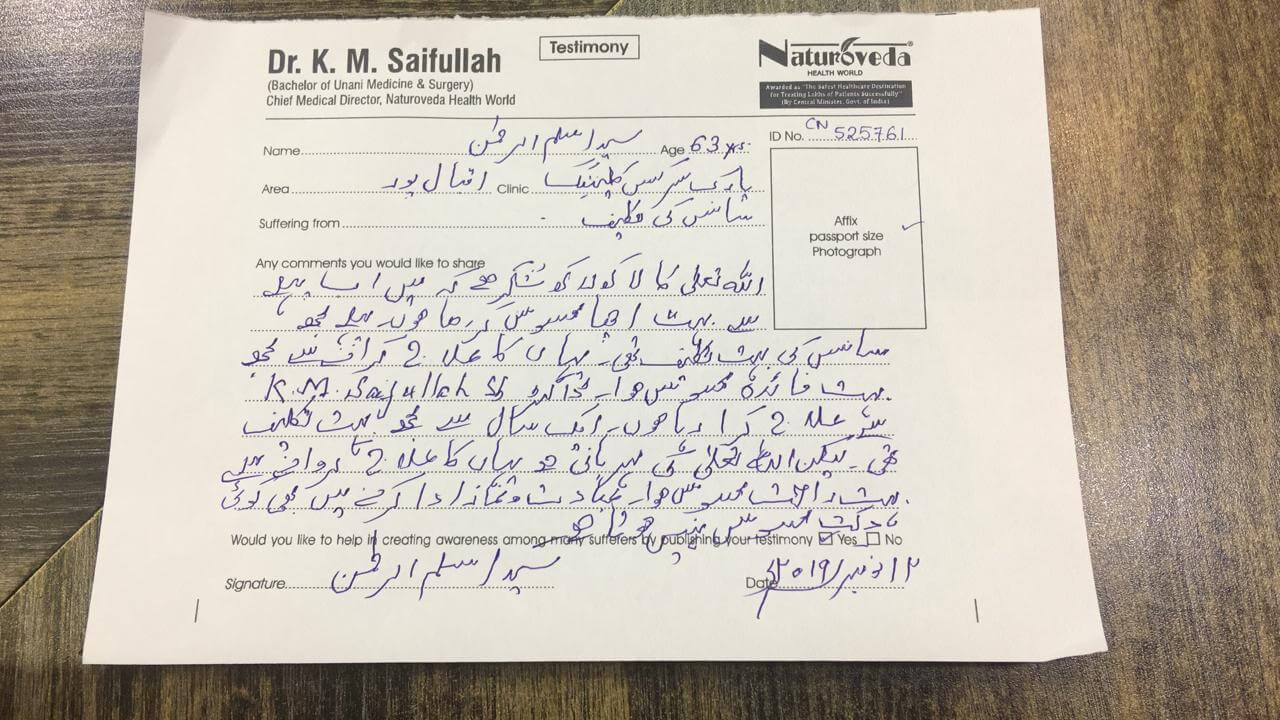 Testimony
Dr. K. M. Saifullah
(Bachelor of Unani Medicine & Surgery)
Chief Medical Director, Naturoveda Health World
Naturoveda®
HEALTH WORLD
Awarded as "The Safest Healthcare Destination
for Treating Lakhs of Patients Successfully"
(By Central Minister, Govt. of India)
ID No. CN 525761
Name سید اسلم الرحمٰن Age 63 yrs.
Area اقبال پور Clinic پارک سرکس کلینیک
Suffering from سانس کی تکلیف
Affix
passport size
Photograph
Any comments you would like to share
اللہ تعالیٰ کا لاکھوں شکر ہے کہ میں اب پہلے
سے بہت اچھا محسوس کر رہا ہوں۔ پہلے مجھے
سانس کی بہت تکلیف تھی۔ یہاں کا علاج کرانے سے مجھے
بہت فائدہ محسوس ہوا۔ K.M. Saifullah
سے علاج کرا رہا ہوں۔ ایک سال سے مجھے بہت تکلیف
تھی۔ لیکن اللہ تعالیٰ کی مہربانی ہو یہاں کا علاج کروانے سے
بہت راحت محسوس ہوا۔ عبادت و نماز ادا کرنے میں بھی کوئی
محسوس نہیں ہوتا ہے
Would you like to help in creating awareness among many sufferers by publishing your testimony ☑ Yes ☐ No
Signature سید اسلم الرحمٰن Date ۱۲ نومبر ۲۰۱۹